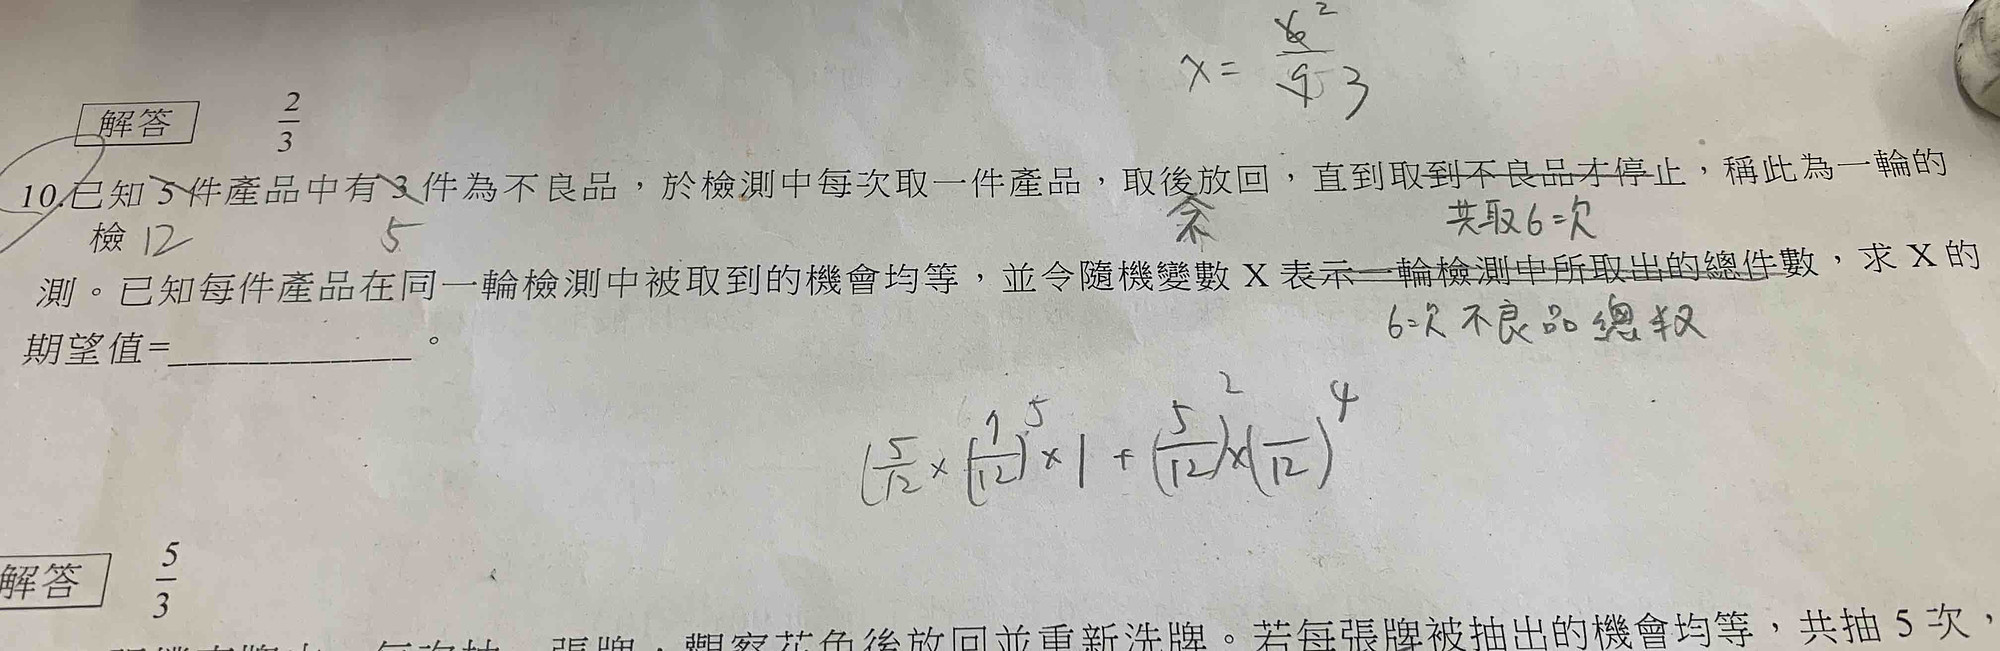 x = 6 2
9 3
解答 2/3
10.已知 5 件產品中有 3 件為不良品，於檢測中每次取一件產品，取後放回，直到取到不良品才停止，稱此為一輪的
檢 12 5 不 共取6次
測。已知每件產品在同一輪檢測中被取到的機會均等，並令隨機變數 X 表示一輪檢測中所取出的總件數，求 X 的
6次不良品總数
期望值=____________。
(5/12 × (7/12)^5 × 1 + (5/12)^2 × (/12)^4
解答 5/3
張牌，觀察花色後放回並重新洗牌。若每張牌被抽出的機會均等，共抽 5 次，